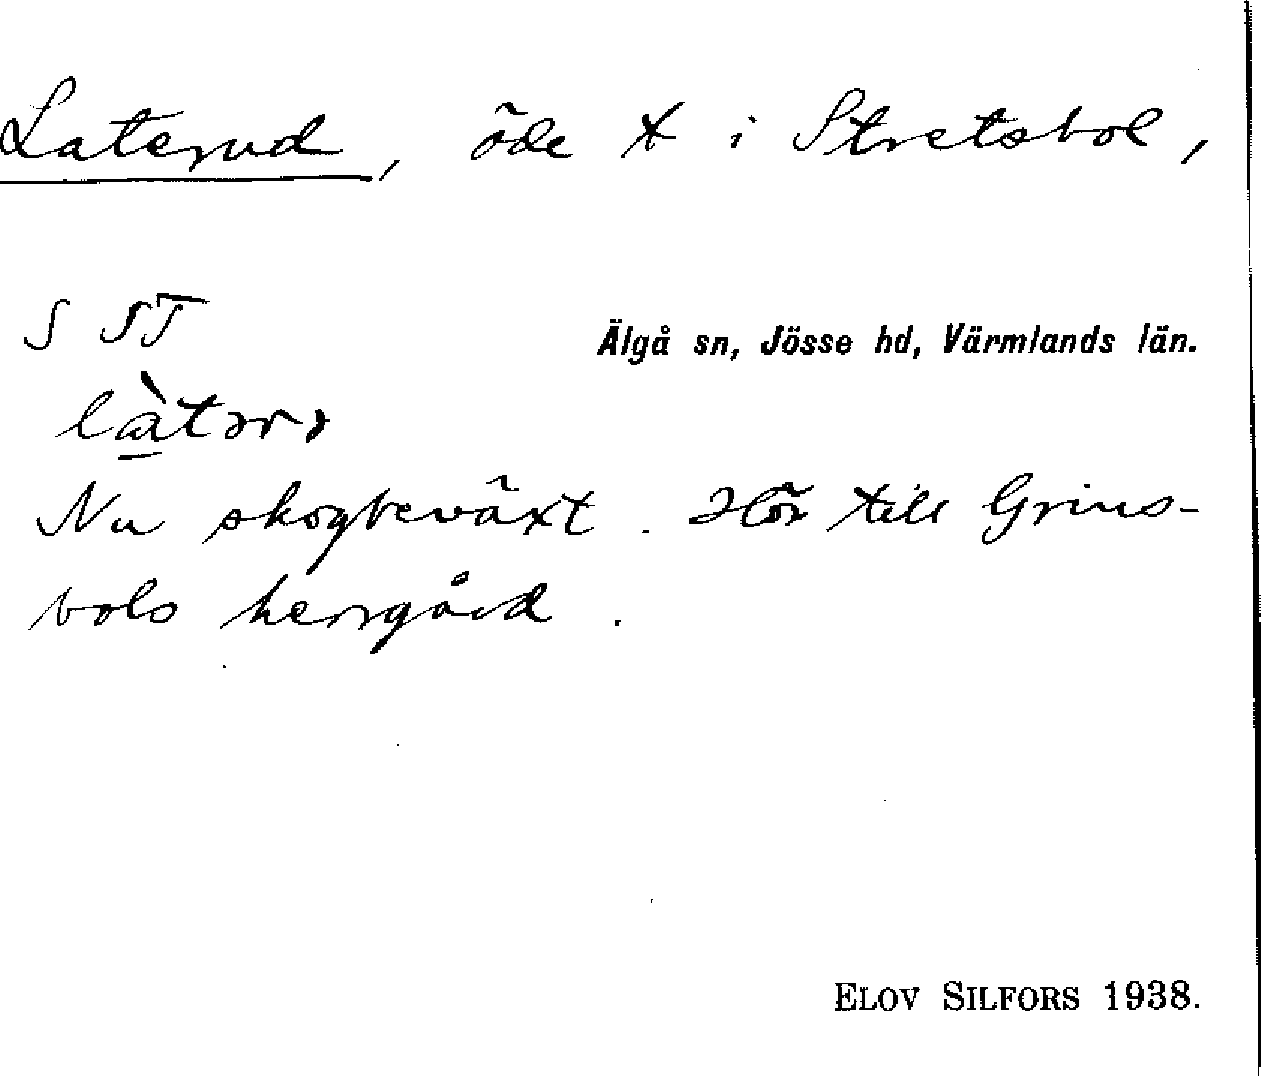 Laterud, öde t i Stretsbol,
S ST
Älgå sn, Jösse hd, Värmlands län.
Nu skogbeväxt. Hör till Grins-
bols herrgård.
ELOV SILFORS 1938.